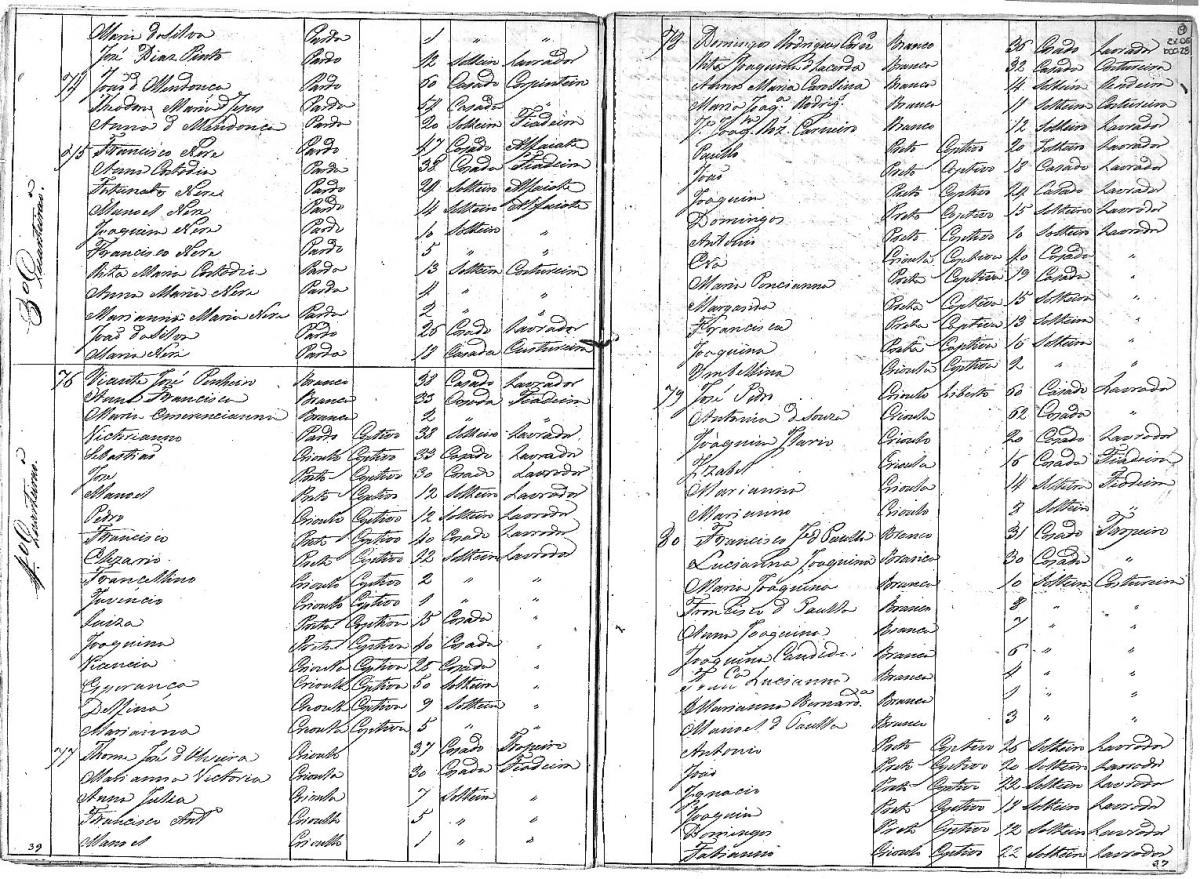 Maria da Silva Parda 1 " "
José Dias Pinto Pardo 12 Solteiro Lavrador
74 João d Mendonca Pardo 60 Casado Carpinteiro
Theodora Maria d Jesus Parda 54 Casada "
Anna d Mendonca Parda 20 Solteira Fiadeira
75 Francisco Nere Pardo 47 Casado Alfaiate
Anna Custodia Parda 38 Casada Fiadeira
Fortunato Nere Pardo 21 Solteiro Alfaiate
Manoel Nere Pardo 14 Solteiro Alfaiate
Joaquim Nere Pardo 10 Solteiro "
Francisco Nere Pardo 5 " "
Rita Maria Custodia Parda 13 Solteira Costureira
Anna Maria Nere Parda 4 " "
Marianna Maria Nere Parda 2 " "
João da Silva Pardo 26 Casado Lavrador
Maria Nere Parda 19 Casada Costureira
3º Quarteirão
76 Vicente José Pinheiro Branco 38 Casado Lavrador
Anna Francisca Branca 33 Casada Fiadeira
Maria Emerencianna Branca 2 " "
Victorianno Pardo Captivo 38 Solteiro Lavrador
Sebastião Crioulo Captivo 33 Casado Lavrador
José Preto Captivo 30 Casado Lavrador
Manoel Preto Captivo 12 Solteiro Lavrador
Pedro Crioulo Captivo 12 Solteiro Lavrador
Francisco Preto Captivo 40 Casado Lavrador
Elizario Preto Captivo 32 Solteiro Lavrador
Francellino Crioulo Captivo 2 " "
Juvencio Crioulo Captivo 1 " "
Luiza Preta Captiva 15 Casada "
Joaquina Preta Captiva 40 Casada "
Crioula Captiva 25 Casada "
Esperança Crioula Captiva 50 Solteira "
Delfina Crioula Captiva 9 Solteira "
Marianna Crioula Captiva 5 " "
77 Thome José d Oliveira Crioulo 37 Casado Tropeiro
Marianna Victoria Crioula 30 Casada Fiadeira
Anna Julia Crioula 7 Solteira "
Francisco Antº Crioulo 5 " "
Manoel Crioulo 1 " "
4º Quarteirão
39
78 Domingos Rodrigues Branco 36 Casado Lavrador
Rita Joaquina d Lacerda Branca 32 Casada Costureira
Anna Maria Carolina Branca 14 Solteira Rendeira
Maria Joaqª Rodrigˢ Branca 11 Solteira Costureira
Joaqᵐ Roz Carneiro Branco 12 Solteiro Lavrador
Paullo Preto Captivo 20 Solteiro Lavrador
João Preto Captivo 18 Casado Lavrador
Joaquim Preto Captivo 24 Casado Lavrador
Domingos Preto Captivo 15 Solteiro Lavrador
Antonio Preto Captivo 10 Solteiro Lavrador
Eva Crioula Captiva 40 Casada "
Maria Poncianna Preta Captiva 19 Casada "
Margarida Preta Captiva 15 Solteira "
Francisca Preta Captiva 13 Solteira "
Joaquina Preta Captiva 16 Solteira "
Umbellina Crioula Captiva 2 " "
79 José Pedro Crioulo Liberto 60 Casado Lavrador
Antonia d Souza Crioula 62 Casada "
Joaquim Crioulo 20 Casado Lavrador
Izabel Crioula 16 Casada Fiadeira
Marianna Crioula 14 Solteira Fiadeira
Marianno Crioulo 8 Solteiro "
80 Francisco Jᵉ d Paulla Branco 31 Casado Tropeiro
Lucianna Joaquina Branca 30 Casada "
Maria Joaquina Branca 10 Solteira Costureira
Francisco d Paulla Branco 8 " "
Anna Joaquina Branca 7 " "
Joaquina Candida Branca 6 " "
Franᶜª Lucianna Branca 4 " "
Marianna Bernardª Branca 1 " "
Manoel d Paulla Branco 3 " "
Antonio Preto Captivo 26 Solteiro Lavrador
João Preto Captivo 20 Solteiro Lavrador
Ignacio Preto Captivo 22 Solteiro Lavrador
Joaquim Preto Captivo 19 Solteiro Lavrador
Domingos Preto Captivo 12 Solteiro Lavrador
Fabianno Crioulo Captivo 22 Solteiro Lavrador